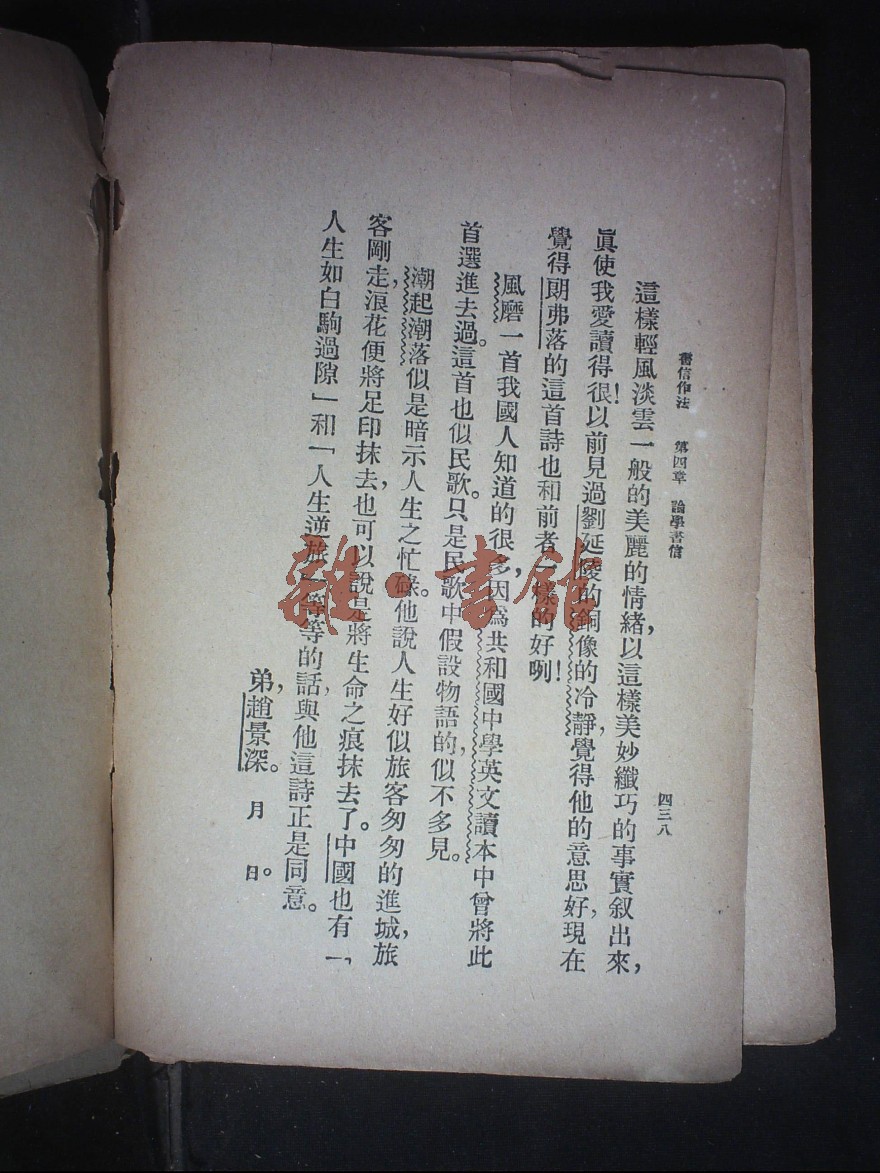 書信作法　第四章　論學書信　四三八
這樣輕風淡雲一般的美麗的情緒，以這樣美妙纖巧的事實叙出來，
眞使我愛讀得很！以前見過劉延陵的銅像的冷靜，覺得他的意思好，現在
覺得朗弗落的這首詩也和前者一樣的好咧！
風磨一首我國人知道的很多，因爲共和國中學英文讀本中曾將此
首選進去過。這首也似民歌。只是民歌中假設物語的，似不多見。
潮起潮落似是暗示人生之忙碌。他說人生好似旅客匆匆的進城，旅
客剛走，浪花便將足印抹去，也可以說是將生命之痕抹去了。中國也有「
人生如白駒過隙」和「人生逆旅」等等的話，與他這詩正是同意。
弟，趙景深。　月　日。
雜·書館